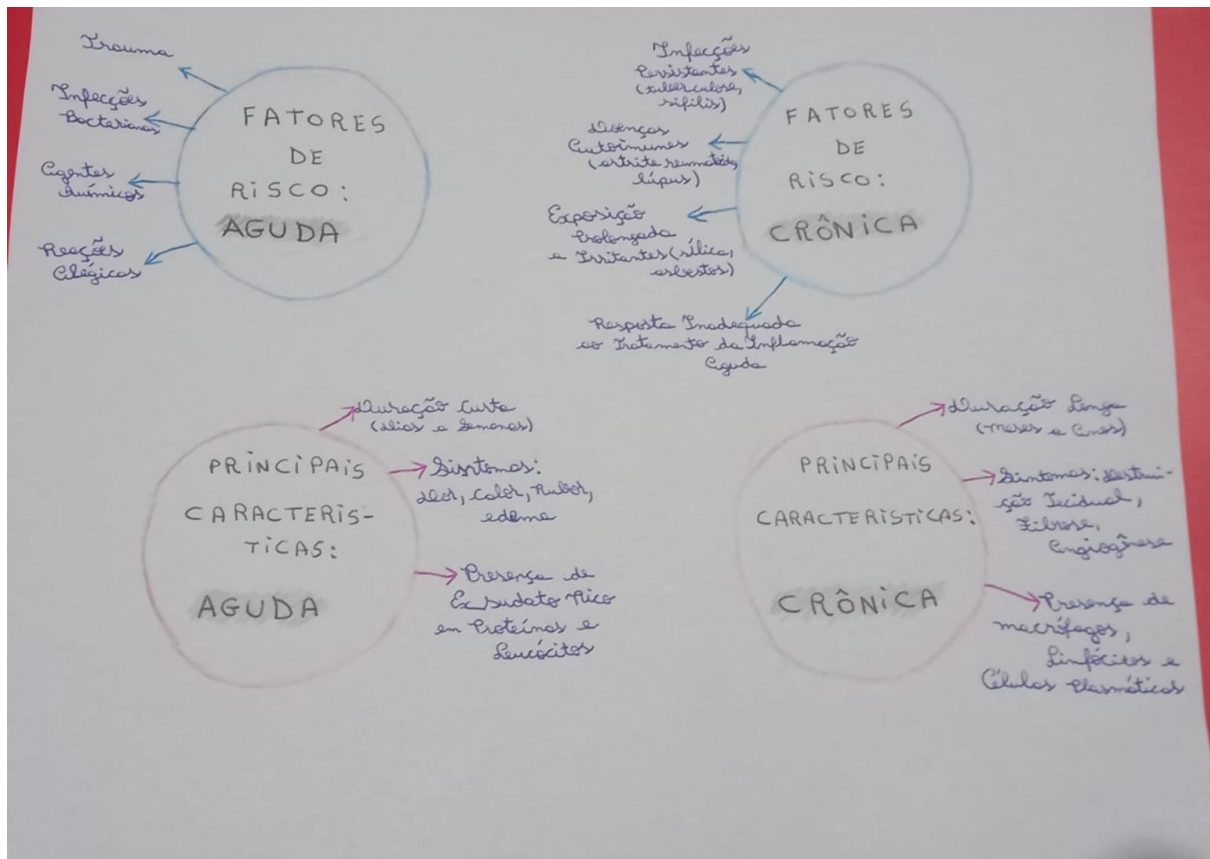 Trauma
Infecções
Bacterianas
Agentes
Químicos
Reações
Alégicas
FATORES
DE
RISCO:
AGUDA
Infecções
Persistentes
(tuberculose,
sífilis)
Doenças
Autoimunes
(artrite reumatóide,
lúpus)
Exposição
Prolongada
a Irritantes (sílica,
asbestos)
Resposta Inadequada
ao Tratamento da Inflamação
Aguda
FATORES
DE
RISCO:
CRÔNICA
PRINCIPAIS
CARACTERIS-
TICAS:
AGUDA
Duração Curta
(dias a Semanas)
Sisntomas:
dor, calor, Rubor,
edema
Presença de
Exsudato Rico
em Proteínas e
Leucócitos
PRINCIPAIS
CARACTERISTICAS:
CRÔNICA
Duração Longa
(meses a Anos)
Sintomas: destrui-
ção Tecidual,
Fibrose,
Angiogênese
Presença de
macrófagos,
Linfócitos e
Células Plasmáticas